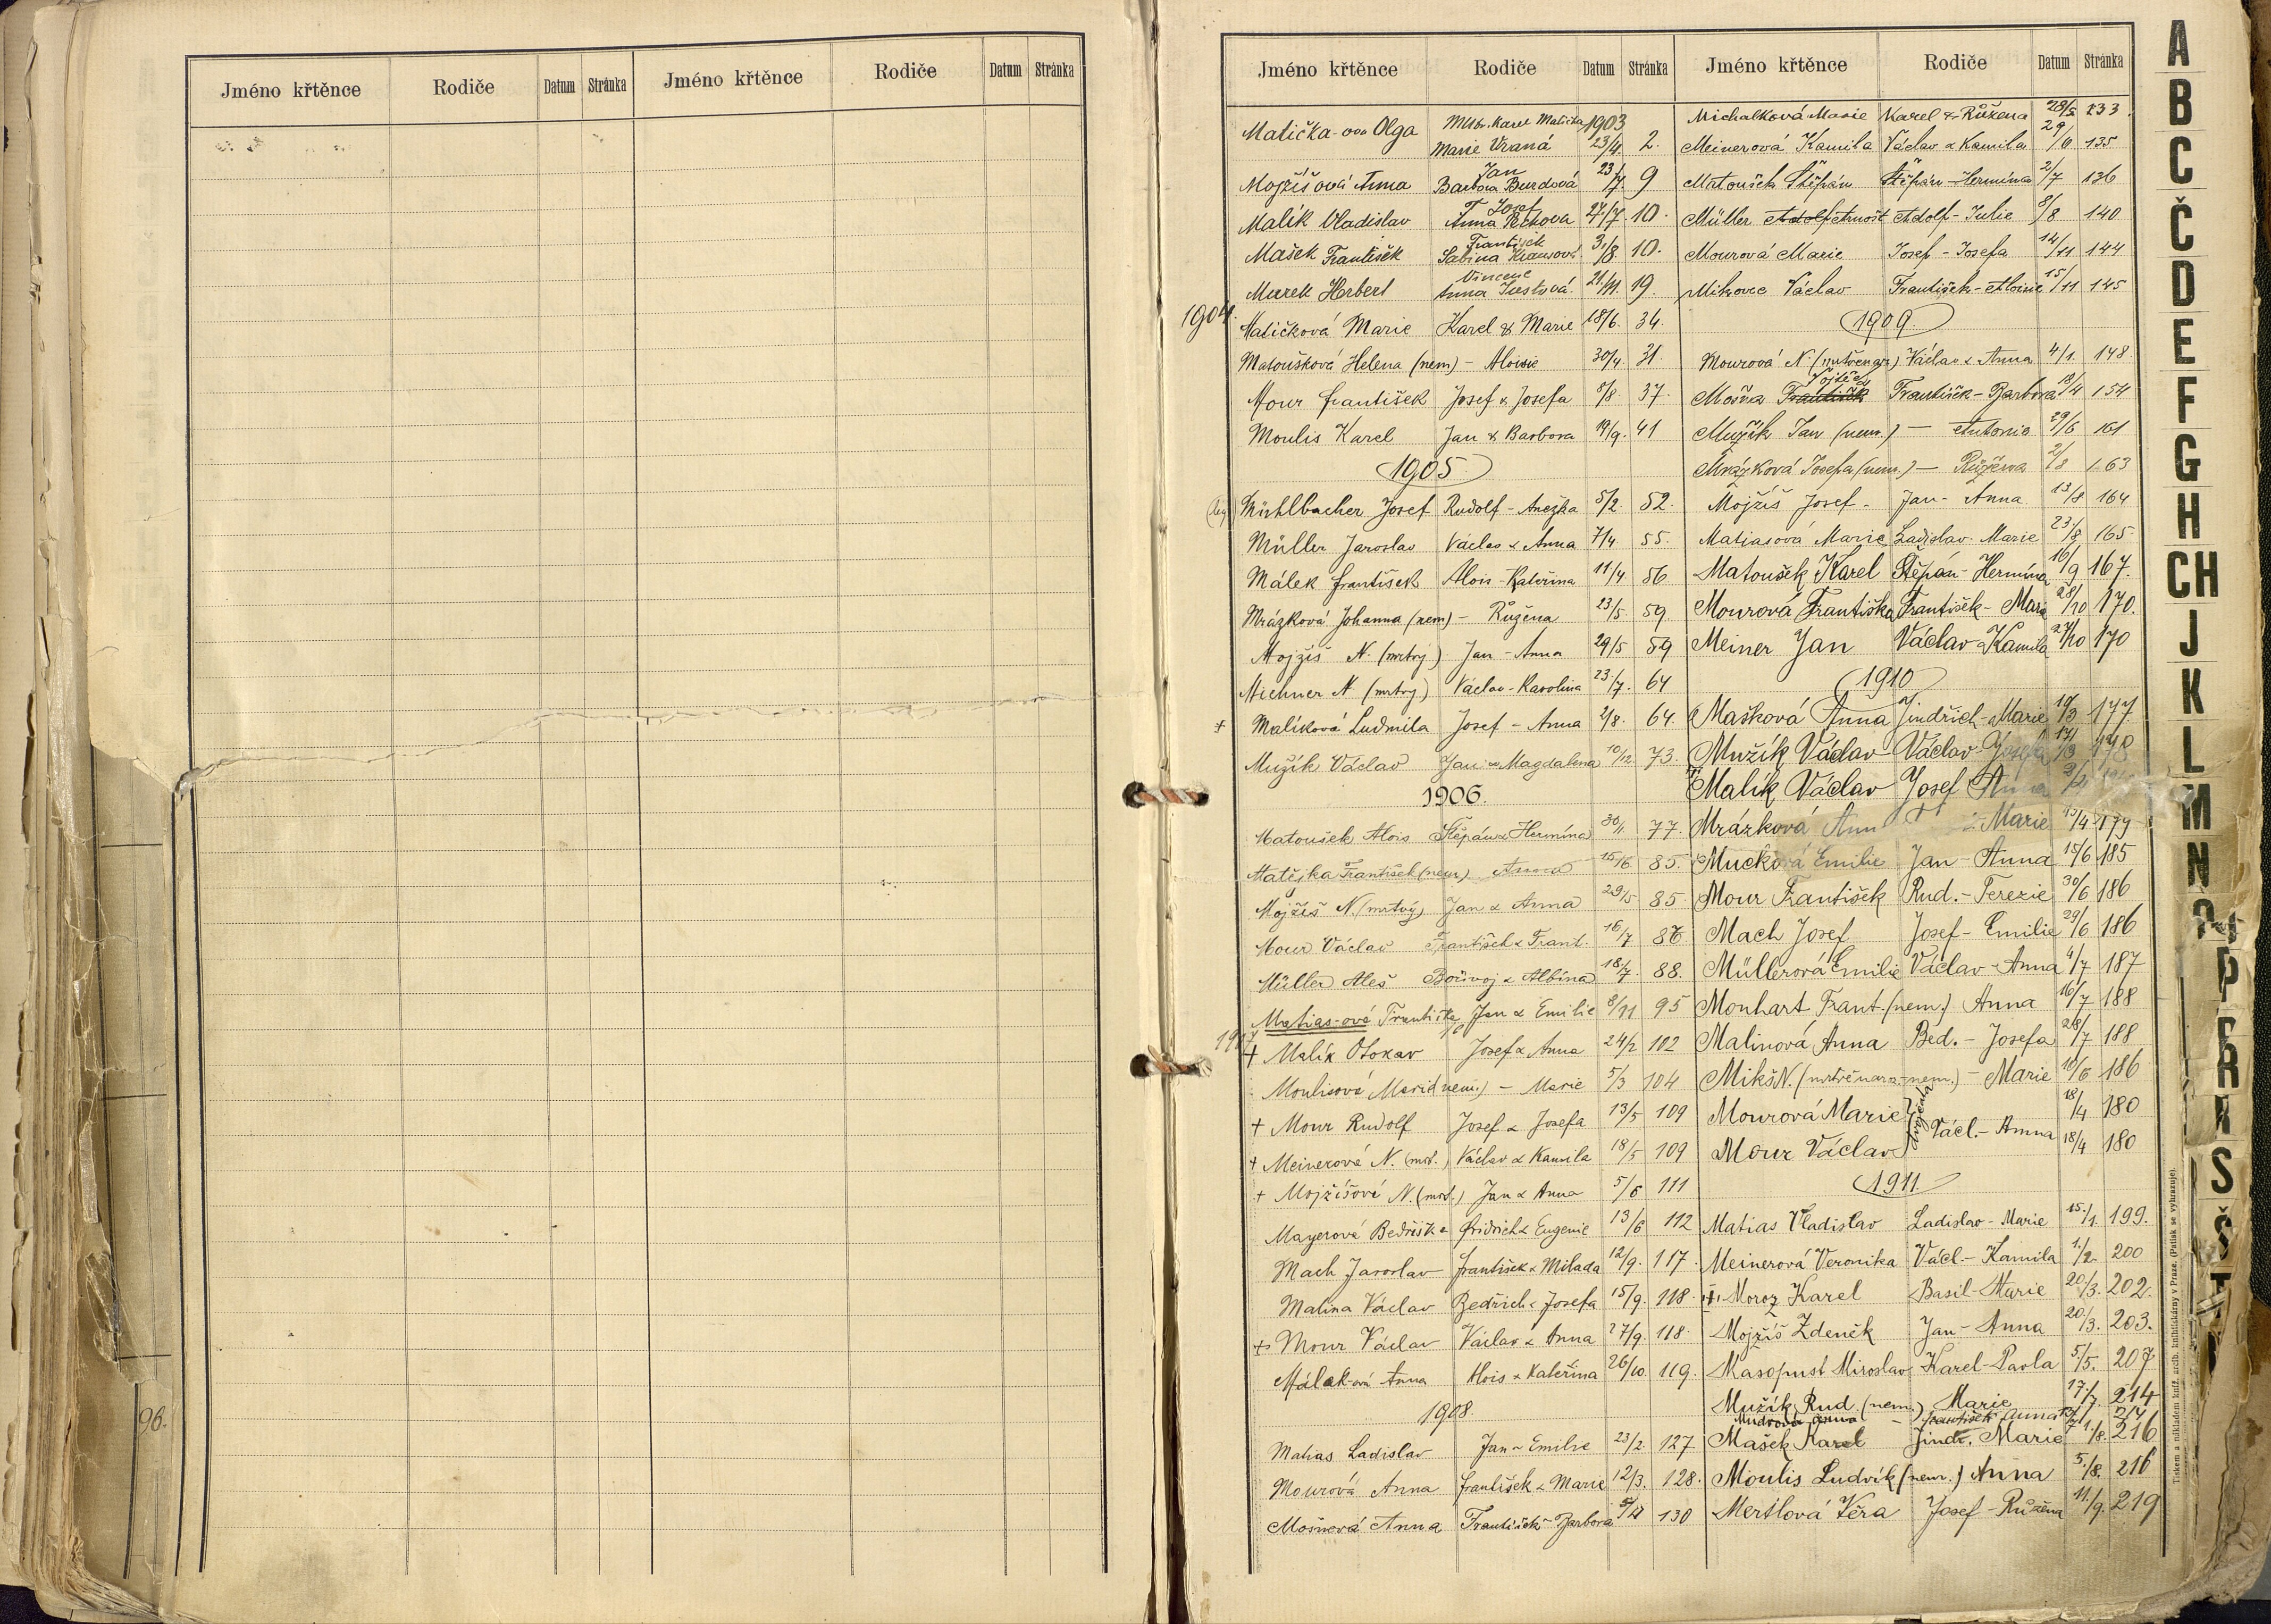 Jméno křtěnce Rodiče Datum Stránka Jméno křtěnce Rodiče Datum Stránka
96.
Jméno křtěnce Rodiče Datum Stránka
Matička-ova Olga MUDr. Karel Matička 1903
Marie Vraná 23/4. 2.
Mojžíšová Anna Jan
Barbora Burdová 23/7. 9
Malík Vladislav Josef
Anna 27/7. 10.
Mašek František František
Sabina Krausová 31/8. 10.
Marek Herbert Vincenc
Anna Justová 21/11. 19.
1904.
Matičková Marie Karel & Marie 18/6. 34.
Matoušková Helena (nem) - Aloisie 30/4. 31.
Mour František Josef & Josefa 8/8. 37.
Moulis Karel Jan & Barbora 19/9. 41
1905
Mühlbacher Josef Rudolf - Anežka 5/2 52.
Müller Jaroslav Václav & Anna 7/4 55.
Málek František Alois - Kateřina 11/4 56
Mrázková Johanna (nem) - Růžena 23/5. 59.
Mojžíš N. (mrtvý) Jan - Anna 29/5 59
Michner N. (mrtvý) Václav - Karolina 23/7. 64
+ Malíková Ludmila Josef - Anna 2/8. 64.
Mužík Václav Jan & Magdalena 10/12. 73.
1906.
Matoušek Alois Štěpán & Hermína 30/1 77.
Matějka František (nem) Anna 15/6 85.
Mojžíš N (mrtvý) Jan & Anna 29/5 85
Mour Václav František & Frant. 16/7 86
Müller Aleš Bořivoj & Albína 18/7. 88.
Matias-ová Františka Jan & Emilie 8/11 95
1907
+ Malík Otokar Josef & Anna 24/2 102
Moulisová Marie (nem.) - Marie 5/3 104
+ Mour Rudolf Josef & Josefa 13/5 109
+ Meinerová N. (mrt.) Václav & Kamila 18/5 109
+ Mojžíšová N. (mrt.) Jan & Anna 5/6 111
Mayerová Bedřiška Fridrich & Eugenie 13/6 112
Mach Jaroslav František & Milada 12/9. 117
Malina Václav Bedřich & Josefa 15/9. 118.
+ Mour Václav Václav & Anna 27/9. 118.
Málek-ová Anna Alois & Kateřina 26/10. 119.
1908.
Matias Ladislav Jan - Emilie 23/2. 127
Mourová Anna František & Marie 12/3. 128.
Mošnová Anna František - Barbora 5/4 130
Jméno křtěnce Rodiče Datum Stránka
Michalková Marie Karel & Růžena 28/5 133
Meinerová Kamila Václav & Kamila 29/6 135
Matoušek Štěpán Štěpán - Hermína 2/7 136
Müller Adolf Arnošt Adolf - Julie 8/8 140
Mourová Marie Josef - Josefa 14/11 144
Mikovec Václav František - Aloisie 15/11 145
1909.
Mourová N. (mrtvě nar.) Václav & Anna 4/1. 148.
Mošna František Vojtěch František - Barbora 18/4 154
Mužík Jan (nem.) - Antonie 29/6 161
Mrázková Josefa (nem.) - Růžena 2/8 163
Mojžíš Josef - Jan - Anna 13/8 164
Matiasová Marie Ladislav - Marie 23/8 165
Matoušek Karel Štěpán - Hermína 16/9 167.
Mourová Františka František - Marie 28/10 170.
Meiner Jan Václav - Kamila 27/10 170
1910
Mašková Anna Jindřich - Marie 19/3 177
Mužík Václav Václav - Josefa 17/3 178
Malík Václav Josef Anna
Mrázková Marie 13/4 179
Mucková Emilie Jan - Anna 15/6 185
Mour František Rud. - Terezie 30/6 186
Mach Josef Josef - Emilie 29/6 186
Müllerová Emilie Václav - Anna 4/7 187
Monhart Frant. (nem.) Anna 16/7 188
Malinová Anna Bed. - Josefa 28/7 188
Mikš N. (mrtvě nar. - nem.) - Marie 10/6 186
Mourová Marie 18/4 180
dvojčata Václ. - Anna
Mour Václav 18/4 180
1911
Matias Vladislav Ladislav - Marie 15./1. 199.
Meinerová Veronika Václ - Kamila 1./2. 200
+ Moroz Karel Basil - Marie 20./3. 202.
Mojžíš Zdeněk Jan - Anna 20./3. 203.
Masopust Miroslav Karel - Pavla 5./5. 207
Mužík Rud. (nem.) Marie 17/7. 214
Mudrová Anna - František Anna
Mašek Karel Jindř. Marie 1./8. 216
Moulis Ludvík (nem.) Anna 5./8. 216
Mertlová Věra Josef - Růžena 11./9. 219
A
B
C
Č
D
E
F
G
H
CH
J
K
L
M
N
P
R
S
Š
Tiskem a nákladem kníž. arcib. knihtiskárny v Praze. (Patisk se vyhrazuje).